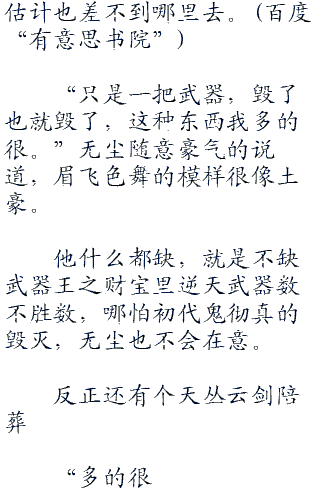 估计也差不到哪里去。(百度
“有意思书院”)
“只是一把武器，毁了
也就毁了，这种东西我多的
很。”无尘随意豪气的说
道，眉飞色舞的模样很像土
豪。
他什么都缺，就是不缺
武器王之财宝里逆天武器数
不胜数，哪怕初代鬼彻真的
毁灭，无尘也不会在意。
反正还有个天丛云剑陪
葬
“多的很